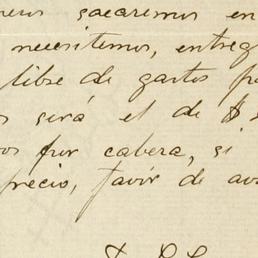 nero sacaremos en
necesitemos, entreg
libre de gastos p
s será el de $
os por cabeza, si
precio, favor de av